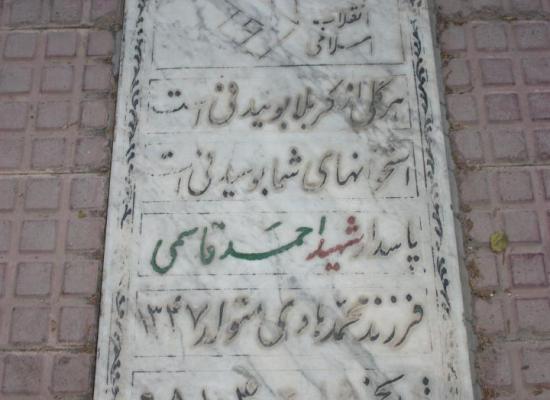 انقلاب
اسلامی
هر گلی از کربلا بوئیدنی است
استخوانهای شما بوسیدنی است
پاسدار شهید احمد قاسمی
فرزند محمد هادی متولد ۱۳۴۷